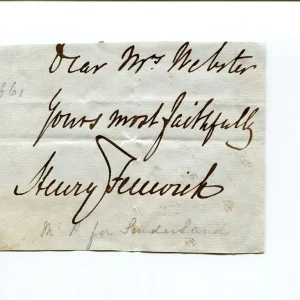 Dear Mrs Webster
Yours most faithfully
Henry Fenwick
M P for Sunderland